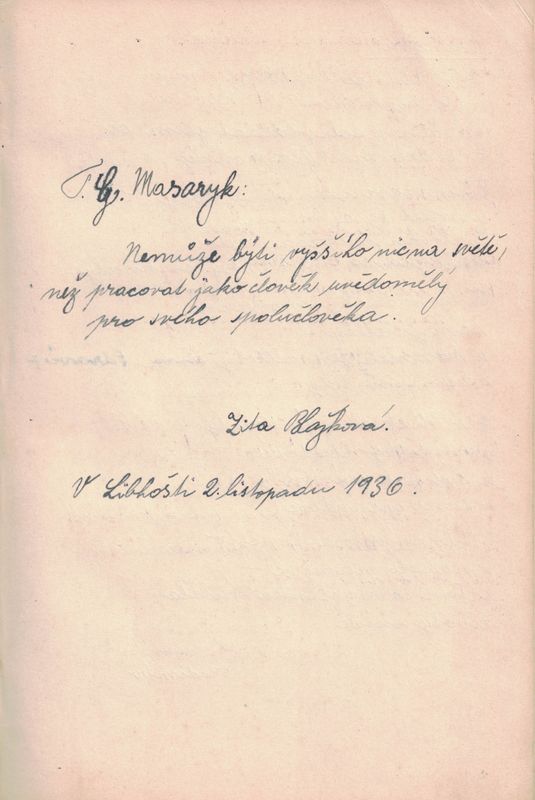 T. G. Masaryk:
Nemůže býti vyššího nic na světě,
než pracovat jako člověk uvědomělý
pro svého spolučlověka.
Zita Blažková.
V Libhošti 2. listopadu 1936.